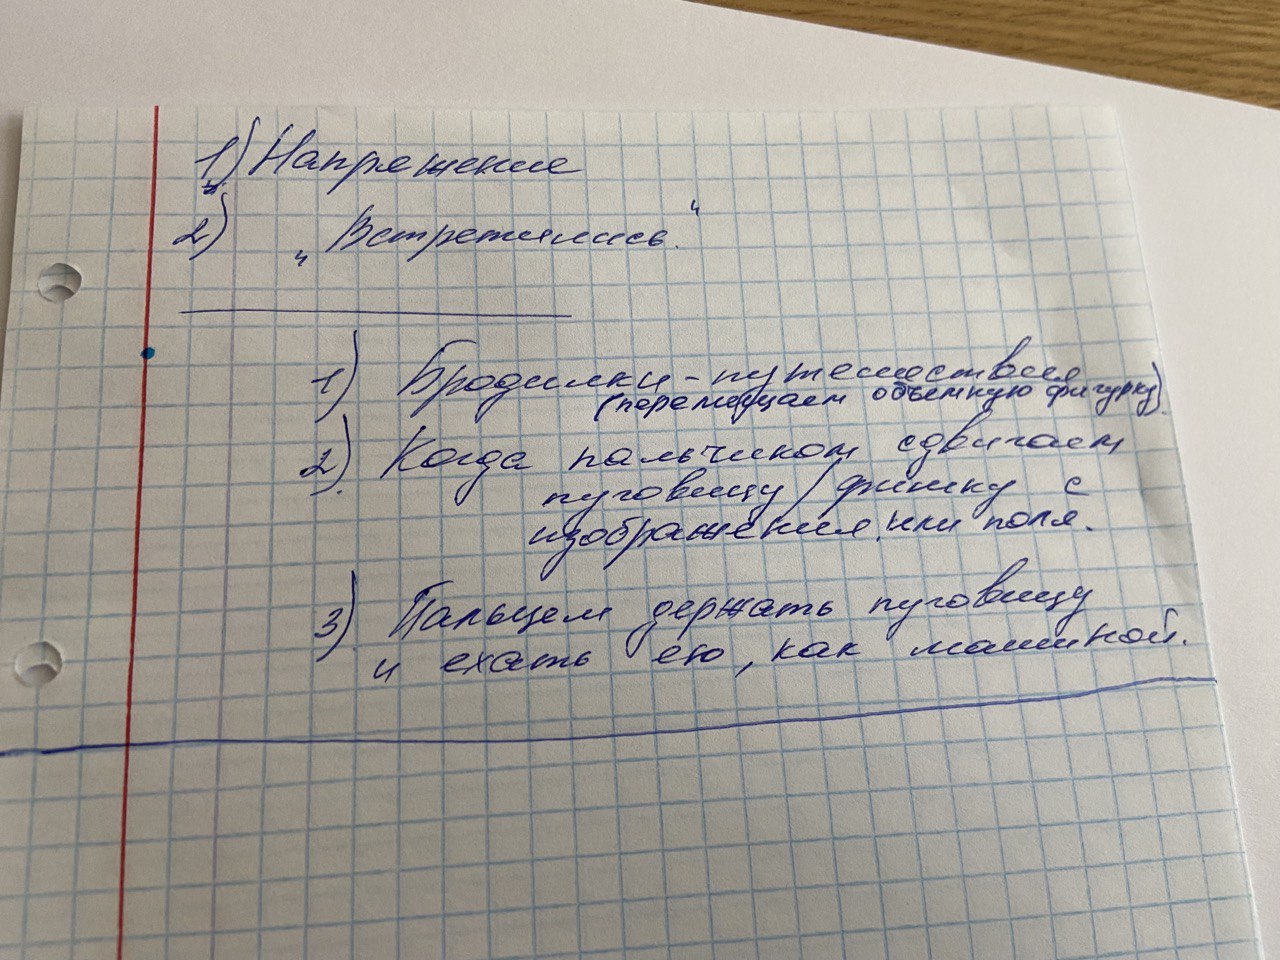 1) Напряжение
2) „Встретились."
1) Бродилки-путешествия
(перемещаем объемную фигурку).
2). Когда пальчиком сдвигаем
пуговицу/фишку с
изображения или поля.
3). Пальцем держать пуговицу
и ехать ею, как машиной.